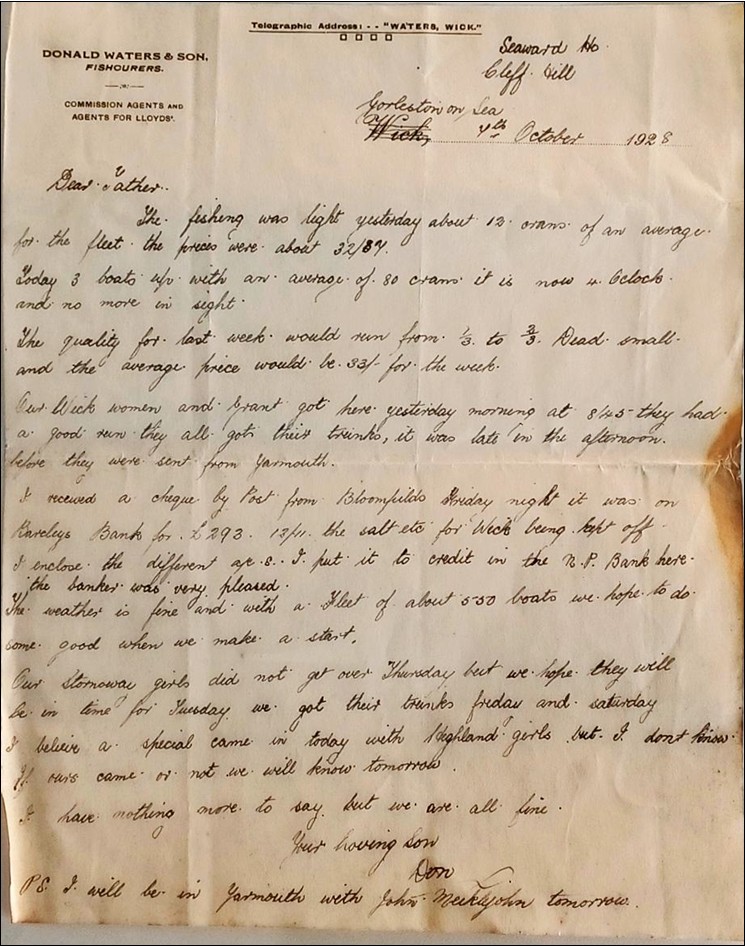 Telegraphic Address: - - "WATERS, WICK."
DONALD WATERS & SON,
FISHCURERS.
COMMISSION AGENTS AND
AGENTS FOR LLOYDS'.
Seaward Ho
Cliff Hill
Gorleston on Sea
Wick, 7th October 1928
Dear Father.
The fishing was light yesterday about 12 crans of an average
for the fleet the prices were about 32/37.
Today 3 boats up with an average of 80 crans it is now 4 Oclock
and no more in sight.
The quality for last week would run from 1/3 to 2/3 Dead small
and the average price would be 33/- for the week.
Our Wick women and Grant got here yesterday morning at 8/45 they had
a good run they all got their trunks, it was late in the afternoon.
before they were sent from Yarmouth.
I received a cheque by Post from Bloomfilds Friday night it was on
Barcleys Bank for £293. 12/11. the salt etc for Wick being kept off
I enclose the different a/c s. I put it to credit in the N.P. Bank here
the banker was very pleased.
The weather is fine and with a Fleet of about 550 boats we hope to do
some good when we make a start.
Our Stornoway girls did not get over Thursday but we hope they will
be in time for Tuesday we got their trunks friday and saturday
I believe a special came in today with Highland girls but I dont know
If ours came or not we will know tomorrow.
I have nothing more to say but we are all fine.
Your loving Son
Don
P.S. I will be in Yarmouth with John Meiklejohn tomorrow.